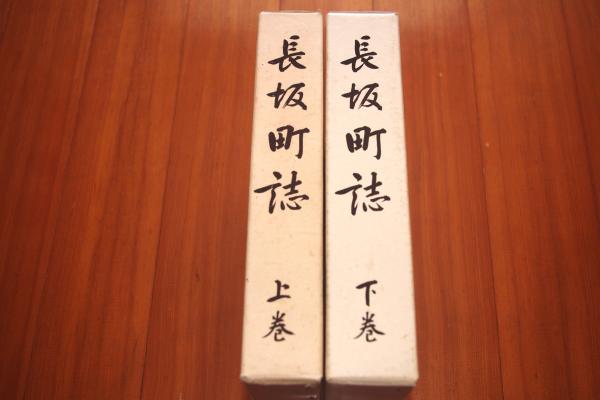 長坂町誌 上巻
長坂町誌 下巻